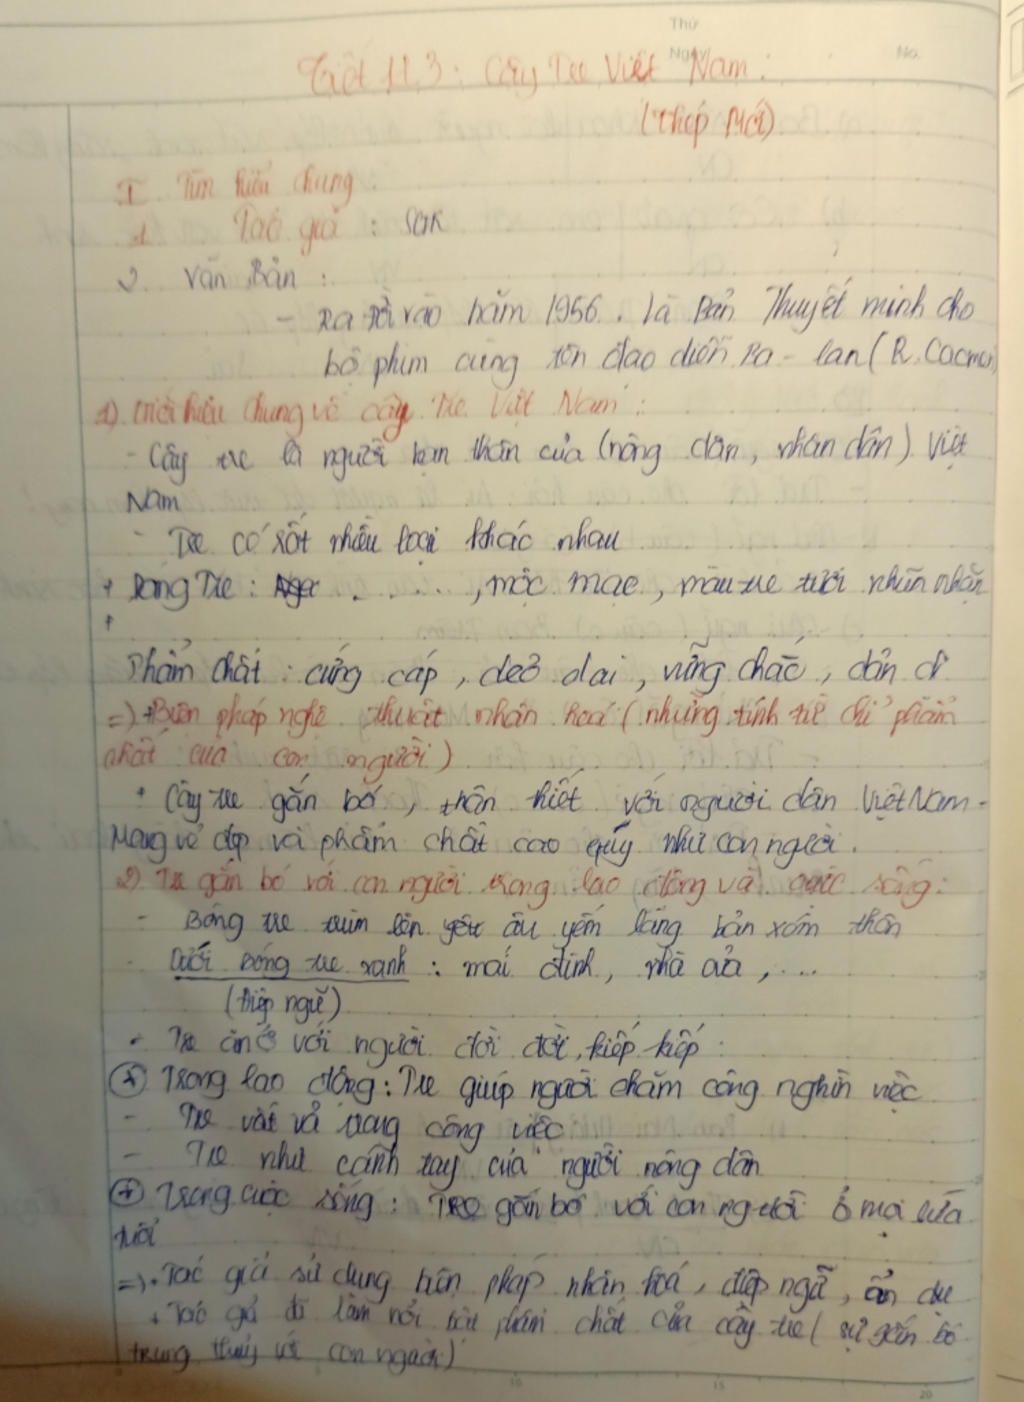 Thứ
Ngày
No.
Tiết 113: Cây Tre Việt Nam:
(Thép Mới)
I. Tìm hiểu chung
1. Tác giả: SGK
2. Văn Bản:
- Ra đời vào năm 1956. là Bản Thuyết minh cho
bộ phim cùng tên đạo diễn Ba - lan (R. Cacmen)
1) Giới hiệu chung về cây Tre Việt Nam:
- Cây tre là người bạn thân của (nông dân, nhân dân) Việt
Nam
- Tre có rất nhiều loại khác nhau
+ Dáng Tre: ...., mộc mạc, màu tre tươi nhũn nhặn
+
Phẩm chất: cứng cáp, dẻo dai, vững chắc, dản dị
=) + Biện pháp nghệ thuật nhân hoá (những tính từ chỉ phẩm
chất của con người)
+ Cây tre gắn bó, thân thiết với người dân Việt Nam.
Mang vẻ đẹp và phẩm chất cao quý như con người.
2) Tre gắn bó với con người trong lao động và cuộc sống:
- Bóng tre trùm lên yêu âu yếm làng bản xóm thôn
- Dưới bóng tre xanh: mái đình, nhà của,....
(điệp ngữ)
- Tre ăn ở với người đời đời, kiếp kiếp
+ Trong lao động: Tre giúp người chăm công nghìn việc
- Tre vất vả trong công việc
- Tre như cánh tay của người nông dân
+ Trong cuộc sống: Tre gắn bó với con người ở mọi lứa
tuổi
=) + Tác giả sử dụng biện pháp nhân hoá, điệp ngữ, ẩn dụ
+ Tác giả đã làm nổi bật phẩm chất của cây tre (sự gắn bó
trung thủy với con người)
10 15 20